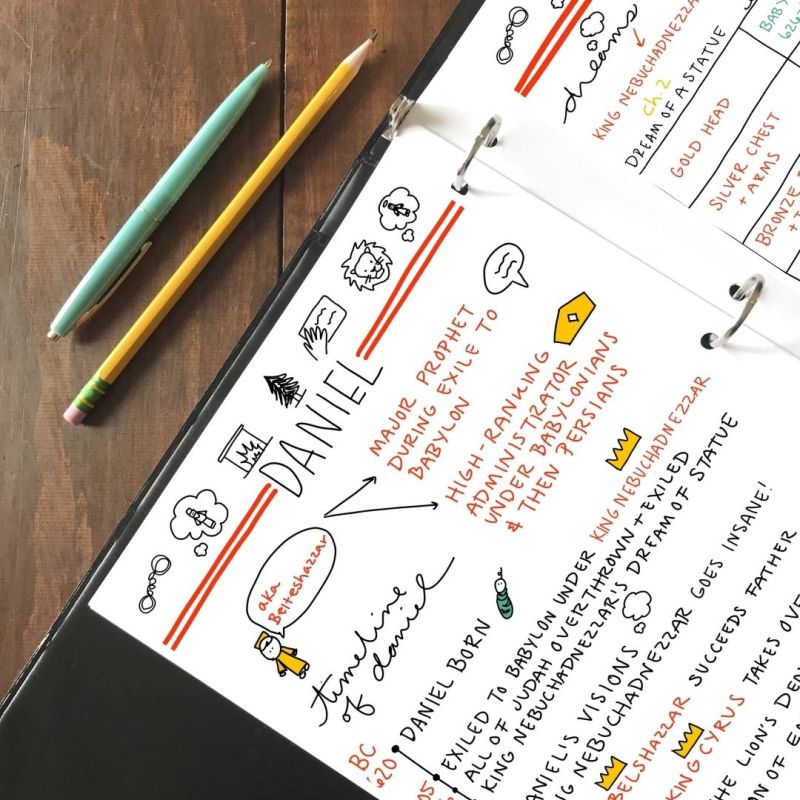 dreams
KING NEBUCHADNEZZA
ch. 2
DREAM OF A STATUE
BABY
626
GOLD HEAD
SILVER CHEST
+ ARMS
BRONZE
+ T
DANIEL
MAJOR PROPHET
DURING EXILE TO
BABYLON
HIGH-RANKING
ADMINISTRATOR
UNDER BABYLONIANS
& THEN PERSIANS
aka
Belteshazzar
timeline
of daniel
BC
'620
DANIEL BORN
05
EXILED TO BABYLON UNDER KING NEBUCHADNEZZAR
ALL OF JUDAH OVERTHROWN + EXILED
KING NEBUCHADNEZZAR'S DREAM OF STATUE
ANIEL'S VISIONS
NG NEBUCHADNEZZAR GOES INSANE!
BELSHAZZAR SUCCEEDS FATHER
KING CYRUS TAKES OVE
THE LION'S DEN
ON OF